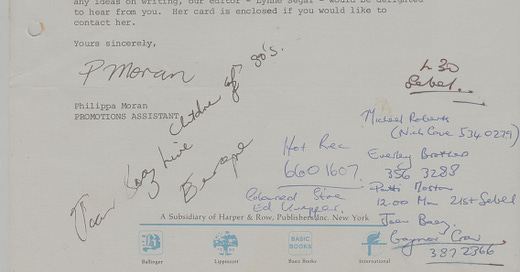 any ideas on writing, our editor - Lynne Segal - would be delighted
to hear from you. Her card is enclosed if you would like to
contact her.
Yours sincerely,
P Moran
Philippa Moran
PROMOTIONS ASSISTANT
Joan Baez Live
Europe
Children of 80's.
Hot Rec
6601607.
Coloured Stone
Ed Kuepper.
4 30
Sebel..
Michael Roberts
(Nick Cave 534 0279)
Everley Brothers
356 3288
Patti Mostyn
12.00 Mon 21st Sebel
Joan Baez.
Gaynor Crow
387 2366
A Subsidiary of Harper & Row, Publishers Inc. New York
Ballinger
Lippincott
BASIC
BOOKS
Basic Books
International